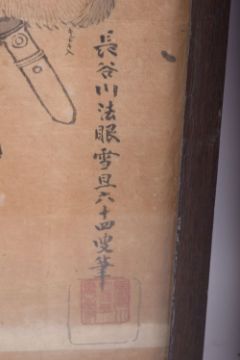 長谷川法眼雪旦六十四叟筆